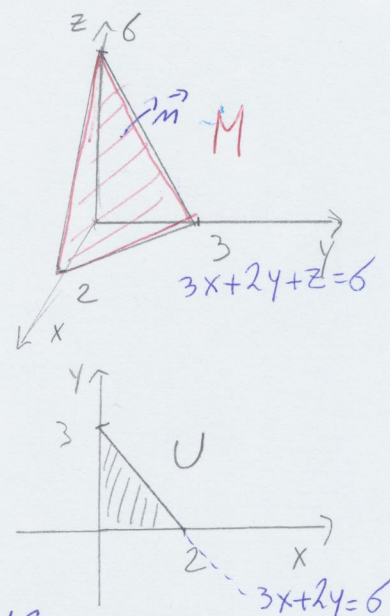 z 6
n
M
3
y
2
3x+2y+z=6
x
y
3
U
2
x
3x+2y=6